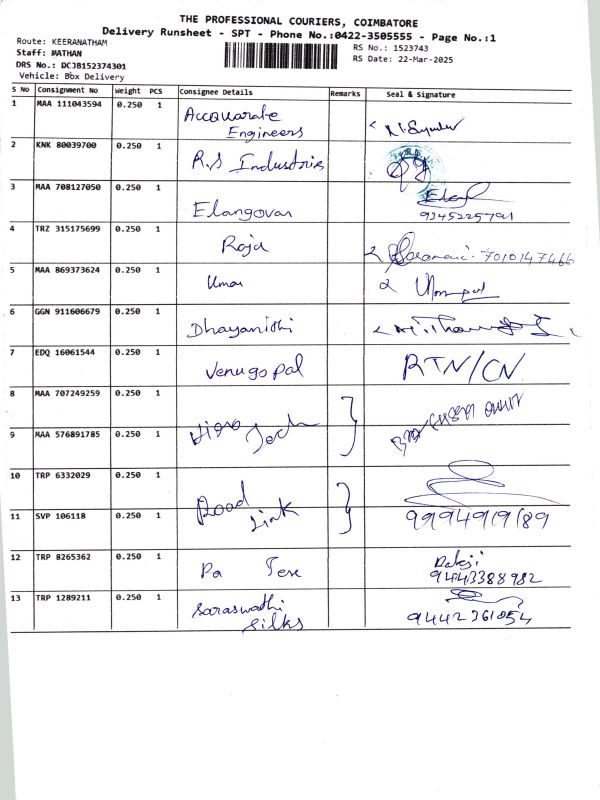 THE PROFESSIONAL COURIERS, COIMBATORE
Delivery Runsheet - SPT - Phone No.:0422-3505555 - Page No.:1
Route: KEERANATHAM
Staff: MATHAN
DRS No.: DCJB152374301
Vehicle: Box Delivery
RS No.: 1523743
RS Date: 22-Mar-2025
S No Consignment No Weight PCS Consignee Details Remarks Seal & Signature
1 MAA 111043594 0.250 1 Accquarate
Engineers
2 KNK 80039700 0.250 1 R.S Industries
3 MAA 708127050 0.250 1 Elangovan
9345225791
4 TRZ 315175699 0.250 1 Raja 7010147466
5 MAA 869373624 0.250 1 Umar
6 GGN 911606679 0.250 1 Dhayanithi
7 EDQ 16061544 0.250 1 Venugopal RTN/CN
8 MAA 707249259 0.250 1
9 MAA 576891785 0.250 1 Tech
10 TRP 6332029 0.250 1 Road
11 SVP 106118 0.250 1 Link 9994919189
12 TRP 8265362 0.250 1 Pa Tex Balaji
9443388982
13 TRP 1289211 0.250 1 Saraswathi
Silks 9442361054